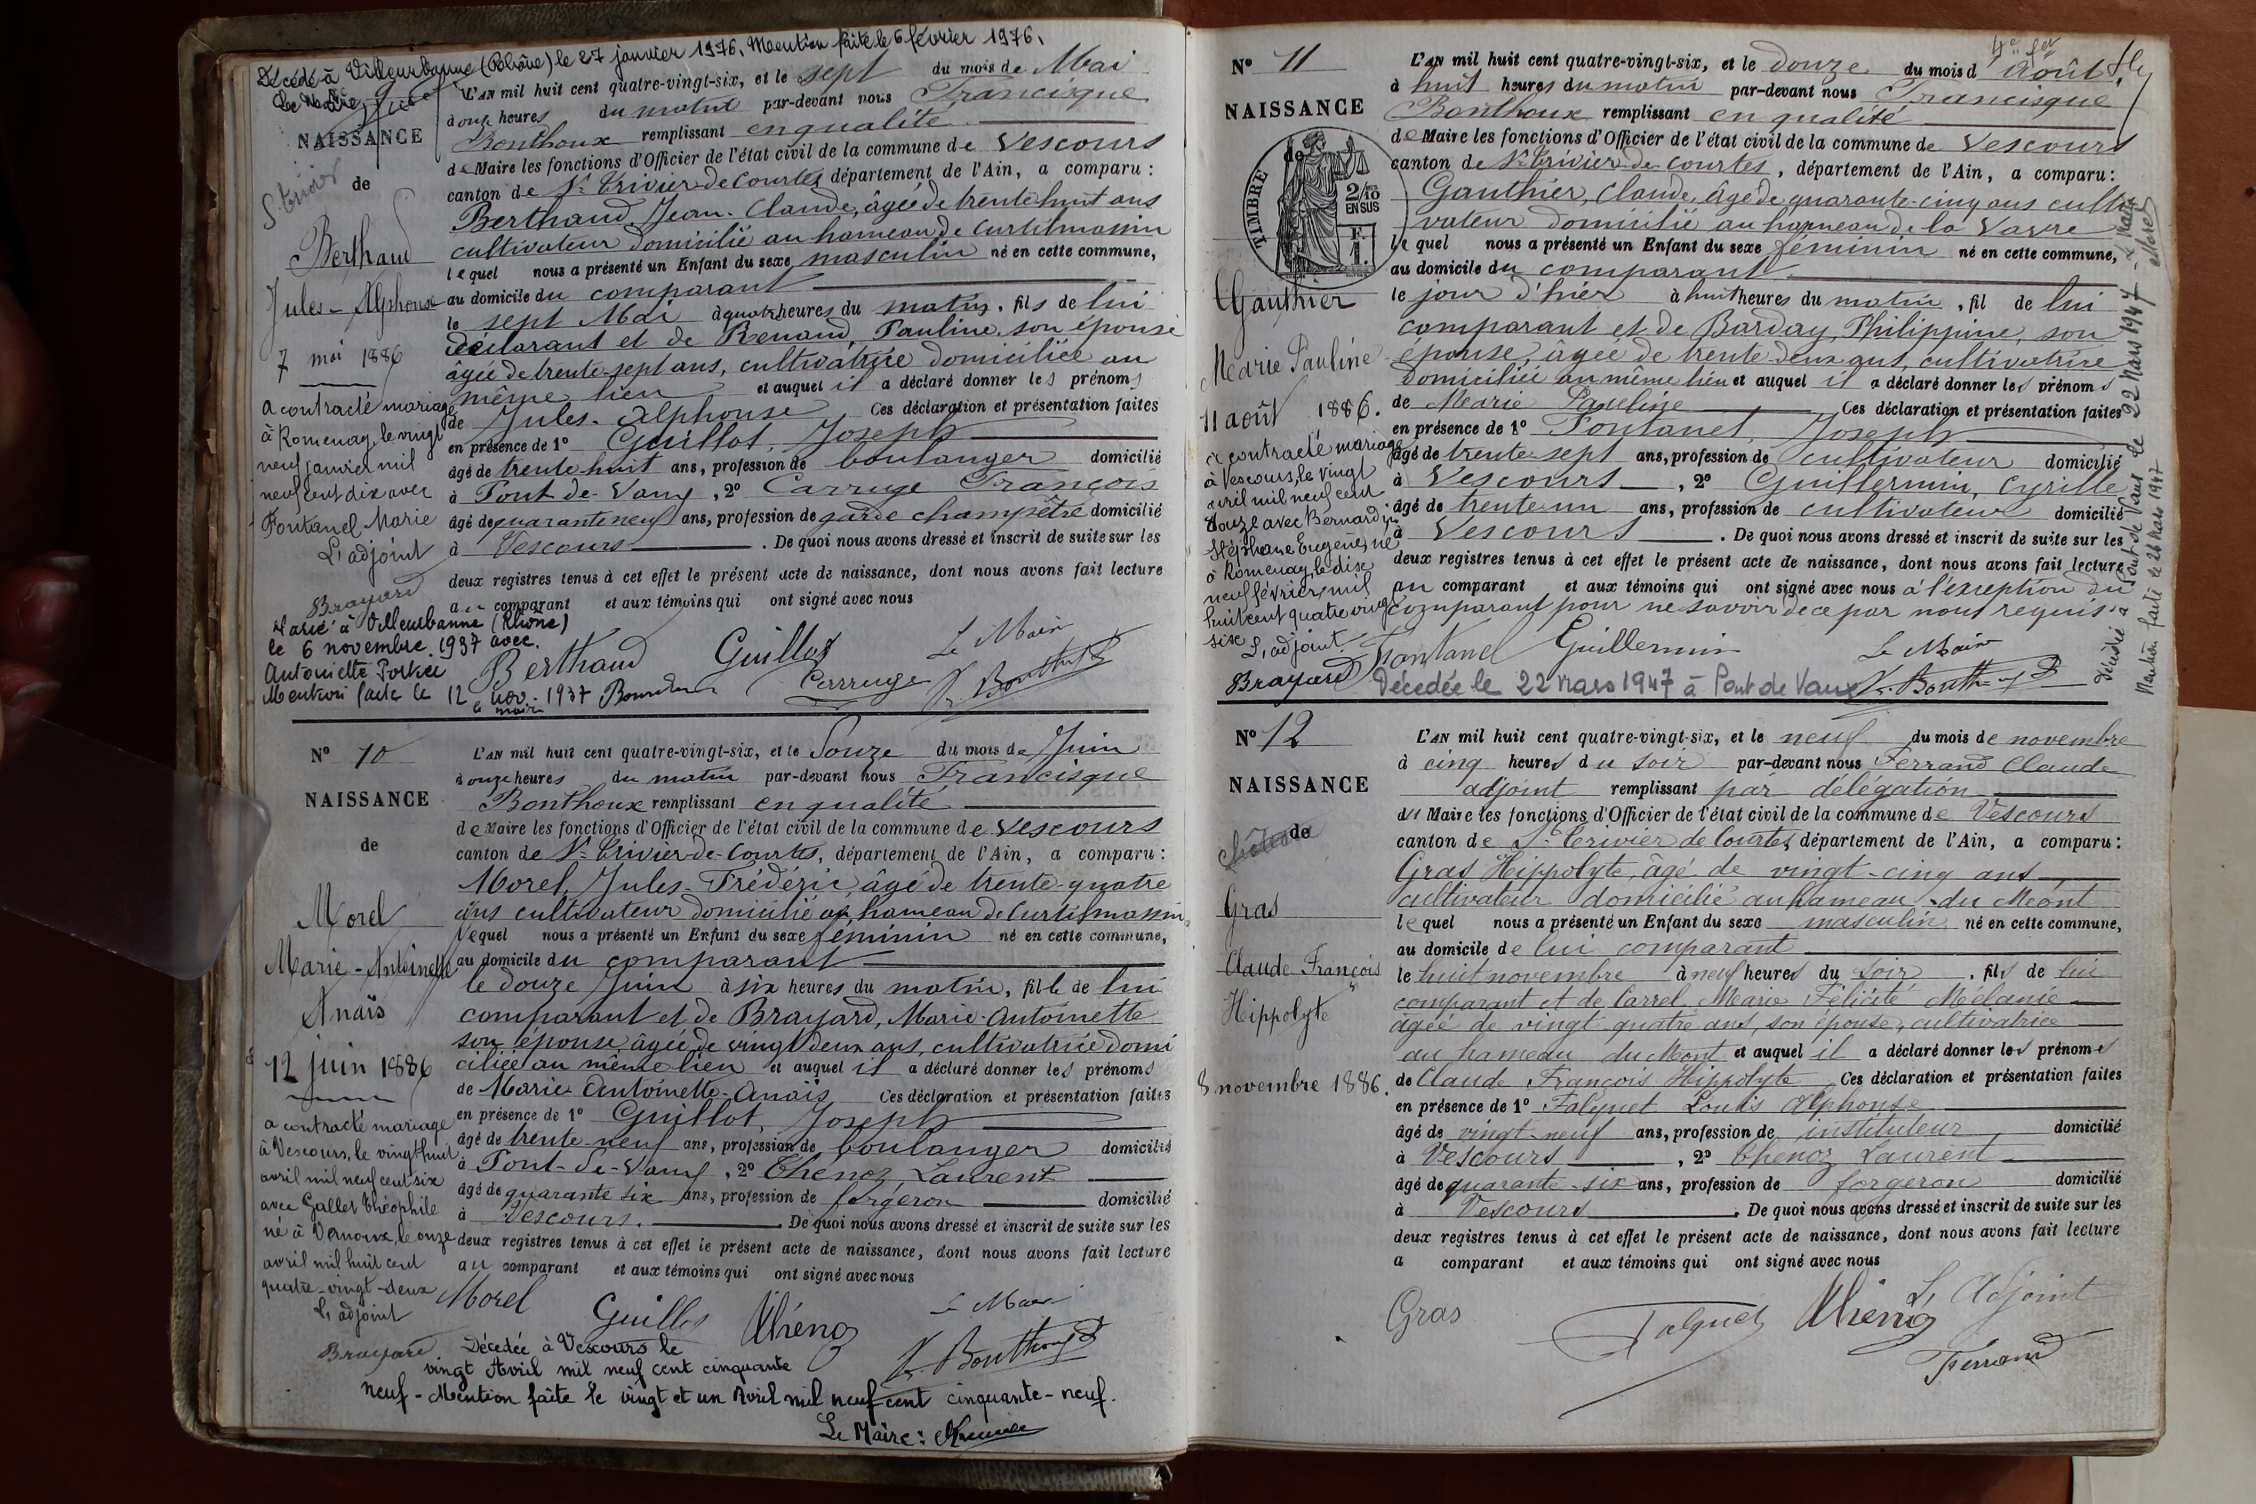 Décédé à Villeurbanne (Rhône) le 27 janvier 1976. Mention faite le 6 février 1976.
Le Maire
NAISSANCE
de
Berthaud
Jules-Alphonse
7 mai 1886
a contracté mariage
à Romenay, le vingt
neuf janvier mil
neuf cent dix avec
Fontanel Marie
L'adjoint
Brayard
Marié à Villeurbanne (Rhône)
le 6 novembre 1937 avec
Antoinette
Mention faite le 12 nov. 1937
Le maire
L'AN mil huit cent quatre-vingt-six, et le sept du mois de Mai
à onze heures du matin par-devant nous Francisque
Bonthoux remplissant en qualité
de Maire les fonctions d'Officier de l'état civil de la commune de Vescours
canton de St Trivier-de-Courtes, département de l'Ain, a comparu :
Berthaud, Jean-Claude, âgée de trente huit ans
cultivateur domicilié au hameau de Curtilmassin
lequel nous a présenté un Enfant du sexe masculin né en cette commune,
au domicile du comparant
le sept Mai à quatre heures du matin, fils de lui
déclarant et de Renaud, Pauline, son épouse
âgée de trente-sept ans, cultivatrice domiciliée au
même lieu et auquel il a déclaré donner les prénoms
de Jules-Alphonse Ces déclaration et présentation faites
en présence de 1º Guillot, Joseph
âgé de trente huit ans, profession de boulanger domicilié
à Pont-de-Vaux, 2º Carruge François
âgé de quarante neuf ans, profession de garde champêtre domicilié
à Vescours. De quoi nous avons dressé et inscrit de suite sur les
deux registres tenus à cet effet le présent acte de naissance, dont nous avons fait lecture
au comparant et aux témoins qui ont signé avec nous
Berthaud Guillot Carruge Le Maire
F. Bonthoux
Nº 10
NAISSANCE
de
Morel
Marie-Antoinette
Anaïs
12 juin 1886
a contracté mariage
à Vescours, le vingt huit
avril mil neuf cent six
avec Gallet Théophile
né à Vernoux, le onze
avril mil huit cent
quatre-vingt-deux
L'adjoint
Brayard
L'AN mil huit cent quatre-vingt-six, et le Douze du mois de Juin
à onze heures du matin par-devant nous Francisque
Bonthoux remplissant en qualité
de Maire les fonctions d'Officier de l'état civil de la commune de Vescours
canton de St Trivier-de-Courtes, département de l'Ain, a comparu :
Morel, Jules-Frédéric, âgé de trente-quatre
ans cultivateur domicilié au hameau de Curtilmassin
lequel nous a présenté un Enfant du sexe féminin né en cette commune,
au domicile du comparant
le douze Juin à six heures du matin, fille de lui
comparant et de Brayard, Marie-Antoinette
son épouse âgée de vingt deux ans, cultivatrice domi
ciliée au même lieu et auquel il a déclaré donner les prénoms
de Marie-Antoinette-Anaïs Ces déclaration et présentation faites
en présence de 1º Guillot, Joseph
âgé de trente-neuf ans, profession de boulanger domicilié
à Pont-de-Vaux, 2º Thénoz, Laurent
âgé de quarante six ans, profession de forgeron domicilié
à Vescours. De quoi nous avons dressé et inscrit de suite sur les
deux registres tenus à cet effet le présent acte de naissance, dont nous avons fait lecture
au comparant et aux témoins qui ont signé avec nous
Morel Guillot Thénoz Le Maire
F. Bonthoux
Décédée à Vescours le
vingt Avril mil neuf cent cinquante
neuf - Mention faite le vingt et un Avril mil neuf cent cinquante-neuf.
Le Maire :
Nº 11
NAISSANCE
de
TIMBRE
2/10
EN SUS
Gauthier
Marie Pauline
11 août 1886.
a contracté mariage
à Vescours, le vingt
avril mil neuf cent
douze avec Bernardin
Stéphane Eugène, né
à Romenay, le dix
neuf février mil
huit cent quatre vingt
six L'adjoint
Brayard
L'AN mil huit cent quatre-vingt-six, et le douze du mois d'Août
à huit heures du matin par-devant nous Francisque
Bonthoux remplissant en qualité
de Maire les fonctions d'Officier de l'état civil de la commune de Vescours
canton de St Trivier-de-Courtes, département de l'Ain, a comparu :
Gauthier, Claude, âgé de quarante-cinq ans culti
vateur domicilié au hameau de la Vavre
lequel nous a présenté un Enfant du sexe féminin né en cette commune,
au domicile du comparant
le jour d'hier à huit heures du matin, fil de lui
comparant et de Barday, Philippine, son
épouse, âgée de trente-deux ans, cultivatrice
domiciliée au même lieu et auquel il a déclaré donner les prénoms
de Marie Pauline Ces déclaration et présentation faites
en présence de 1º Fontanel, Joseph
âgé de trente-sept ans, profession de cultivateur domicilié
à Vescours, 2º Guillermin, Cyrille
âgé de trente-un ans, profession de cultivateur domicilié
à Vescours. De quoi nous avons dressé et inscrit de suite sur les
deux registres tenus à cet effet le présent acte de naissance, dont nous avons fait lecture
au comparant et aux témoins qui ont signé avec nous à l'exception du
comparant pour ne savoir de ce par nous requis
Fontanel Guillermin Le Maire
F. Bonthoux
Décedée le 22 mars 1947 à Pont de Vaux
Décédée à Pont de Vaux le 22 Mars 1947 - Le Maire
Mention faite le 26 Mars 1947
Nº 12
NAISSANCE
de
Gras
Claude François
Hippolyte
8 novembre 1886.
L'AN mil huit cent quatre-vingt-six, et le neuf du mois de novembre
à cinq heures du soir par-devant nous Ferrand Claude
adjoint remplissant par délégation
du Maire les fonctions d'Officier de l'état civil de la commune de Vescours
canton de St Trivier de Courtes département de l'Ain, a comparu :
Gras Hippolyte, âgé de vingt-cinq ans
cultivateur domicilié au hameau du Mont
lequel nous a présenté un Enfant du sexe masculin né en cette commune,
au domicile de lui comparant
le huit novembre à neuf heures du soir, fils de lui
comparant et de Carrel Marie Félicité Mélanie
âgée de vingt-quatre ans, son épouse, cultivatrice
au hameau du Mont et auquel il a déclaré donner les prénoms
de Claude François Hippolyte Ces déclaration et présentation faites
en présence de 1º Falquet Louis Alphonse
âgé de vingt-neuf ans, profession de instituteur domicilié
à Vescours, 2º Thenoz Laurent
âgé de quarante-six ans, profession de forgeron domicilié
à Vescours. De quoi nous avons dressé et inscrit de suite sur les
deux registres tenus à cet effet le présent acte de naissance, dont nous avons fait lecture
a comparant et aux témoins qui ont signé avec nous
Gras Falquet Thénoz L'Adjoint
Ferrand